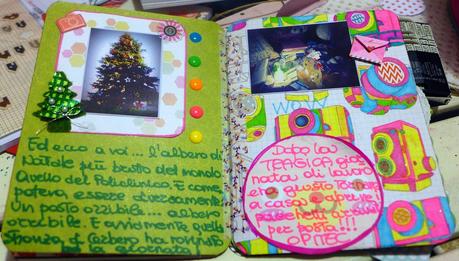 Ed ecco a voi... l'albero di
Natale più brutto del mondo.
Quello del Policlinico. E come
poteva essere diversamente
un posto orribile... albero
orribile. E ovviamente quello
stronzo di albero ha rovinato
WOW
Dopo la
TRAGICA gior
nata di lavoro
era giusto tornare
a casa e aprire
pacchetti arrivati
per posta!!!
OPITEC